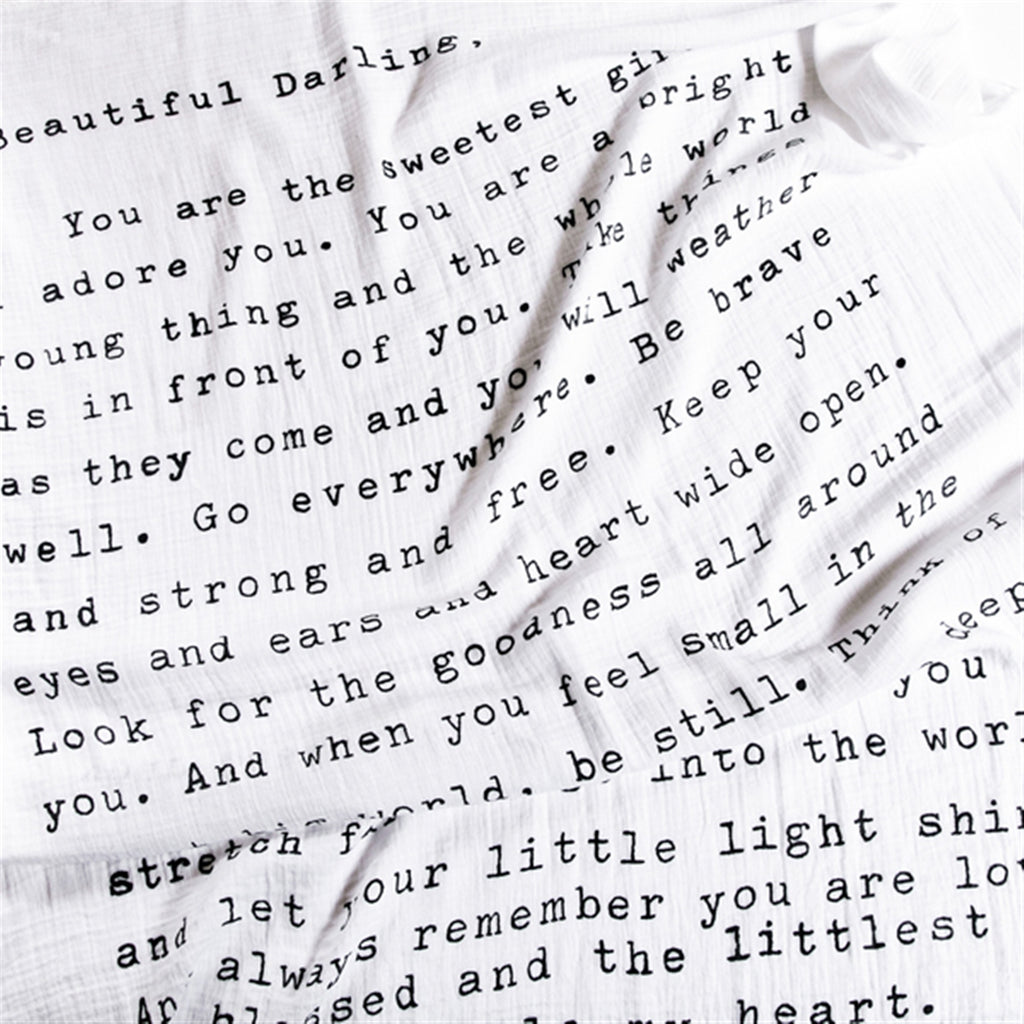 Beautiful Darling,
You are the sweetest
adore you. You are a bright
young thing and the whole world
is in front of you. Take things
as they come and you will weather
well. Go everywhere. Be brave
and strong and free. Keep your
eyes and ears and heart wide open.
Look for the goodness all around
you. And when you feel small in the
world, be still. Think of
you deep
stretch into the
and let your little light
always remember you are
blessed and the littlest
my heart.